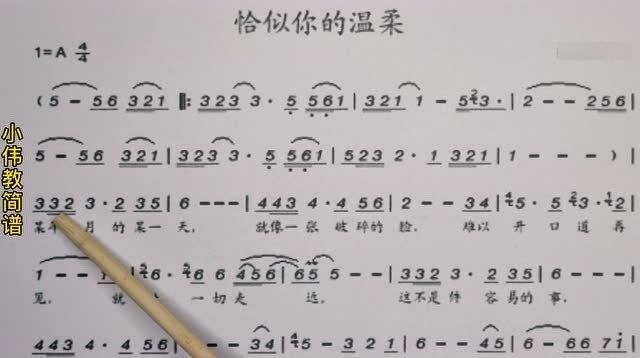 恰似你的温柔
1=A 4/4
小伟教简谱
( 5 - 56 321 ‖: 323 3· 5 561 | 321 1 - 53· | 2 - - 256 |
5 - 56 321 | 323 3· 5 561 | 523 2· 1 | 1 - - ) |
332 3·2 35 | 6 - - - | 443 4·4 56 | 2 - - 34 | 5· 5 23·12 |
某年 月的某一天, 就像一张破碎的脸, 难以开口道再
1 - 1 6· 6 6 456 | 65 - - | 332 3·2 35 | 6 - - - |
见, 就 一切走 远, 这不是件容易的事,
443 4· 3 - - 34 | 45· 5 321 | 6 - - 45 | 6 - 66 71 |